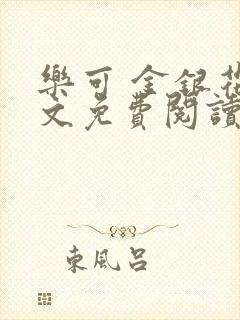 樂可 金銀花
文免費閱讀
東風呂